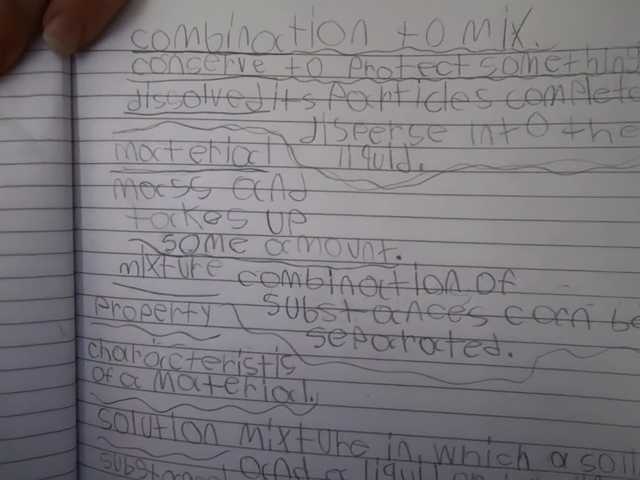 combination to mix.
conserve to protect something
dissolved its particles complete
disperse into the
material liquid.
mass and
takes up
some amount.
mixture combination of
substances can be
property separated.
characteristis
of a material.
solution mixture in which a soli
and a liquid